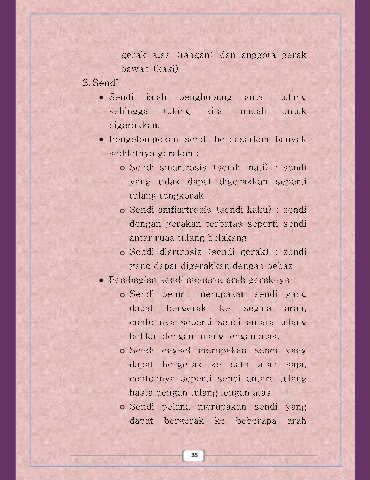 gerak atas (tangan) dan anggota gerak
bawah (kaki)
3. Sendi
• Sendi ialah penghubung antar tulang
sehingga tulang kita mudah untuk
digerakkan.
• Pengelompokan sendi berdasarkan banyak
sedikitnya gerakan :
o Sendi sinartrosis (sendi mati) : sendi
yang tidak dapat digerakkan seperti
tulang tengkorak
o Sendi amfiartrosis (sendi kaku) : sendi
dengan gerakan terbatas seperti sendi
antar ruas tulang belakang
o Sendi diartrosis (sendi gerak) : sendi
yang dapat digerakkan dengan bebas
• Pembagian sendi menurut arah geraknya
o Sendi peluru merupakan sendi yang
dapat bergerak ke segala arah,
contohnya seperti sendi antara tulang
dengan tulang lengan atas.
o Sendi engsel merupakan sendi yang
dapat bergerak ke satu arah saja,
contohnya seperti sendi antara tulang
hasta dengan tulang lengan atas
o Sendi pelana merupakan sendi yang
dapat bergerak ke beberapa arah
35